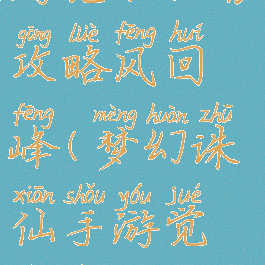 gōng lüè fēng huí
攻略风回
fēng mèng huàn zhū
峰(梦幻诛
xiān shǒu yóu jué
仙手游觉